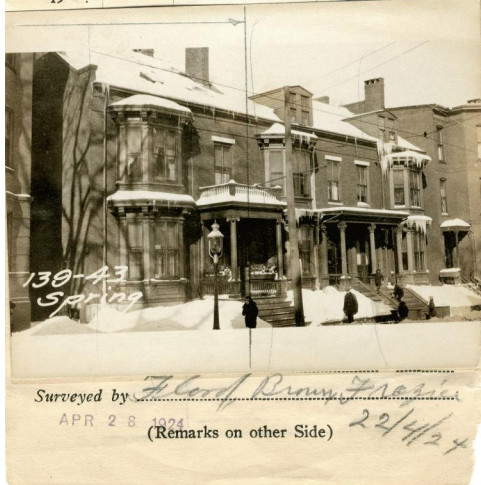 139-43
Spring
Surveyed by Flood, Brown, Frazier
APR 28 1924
(Remarks on other Side)
22/4/24